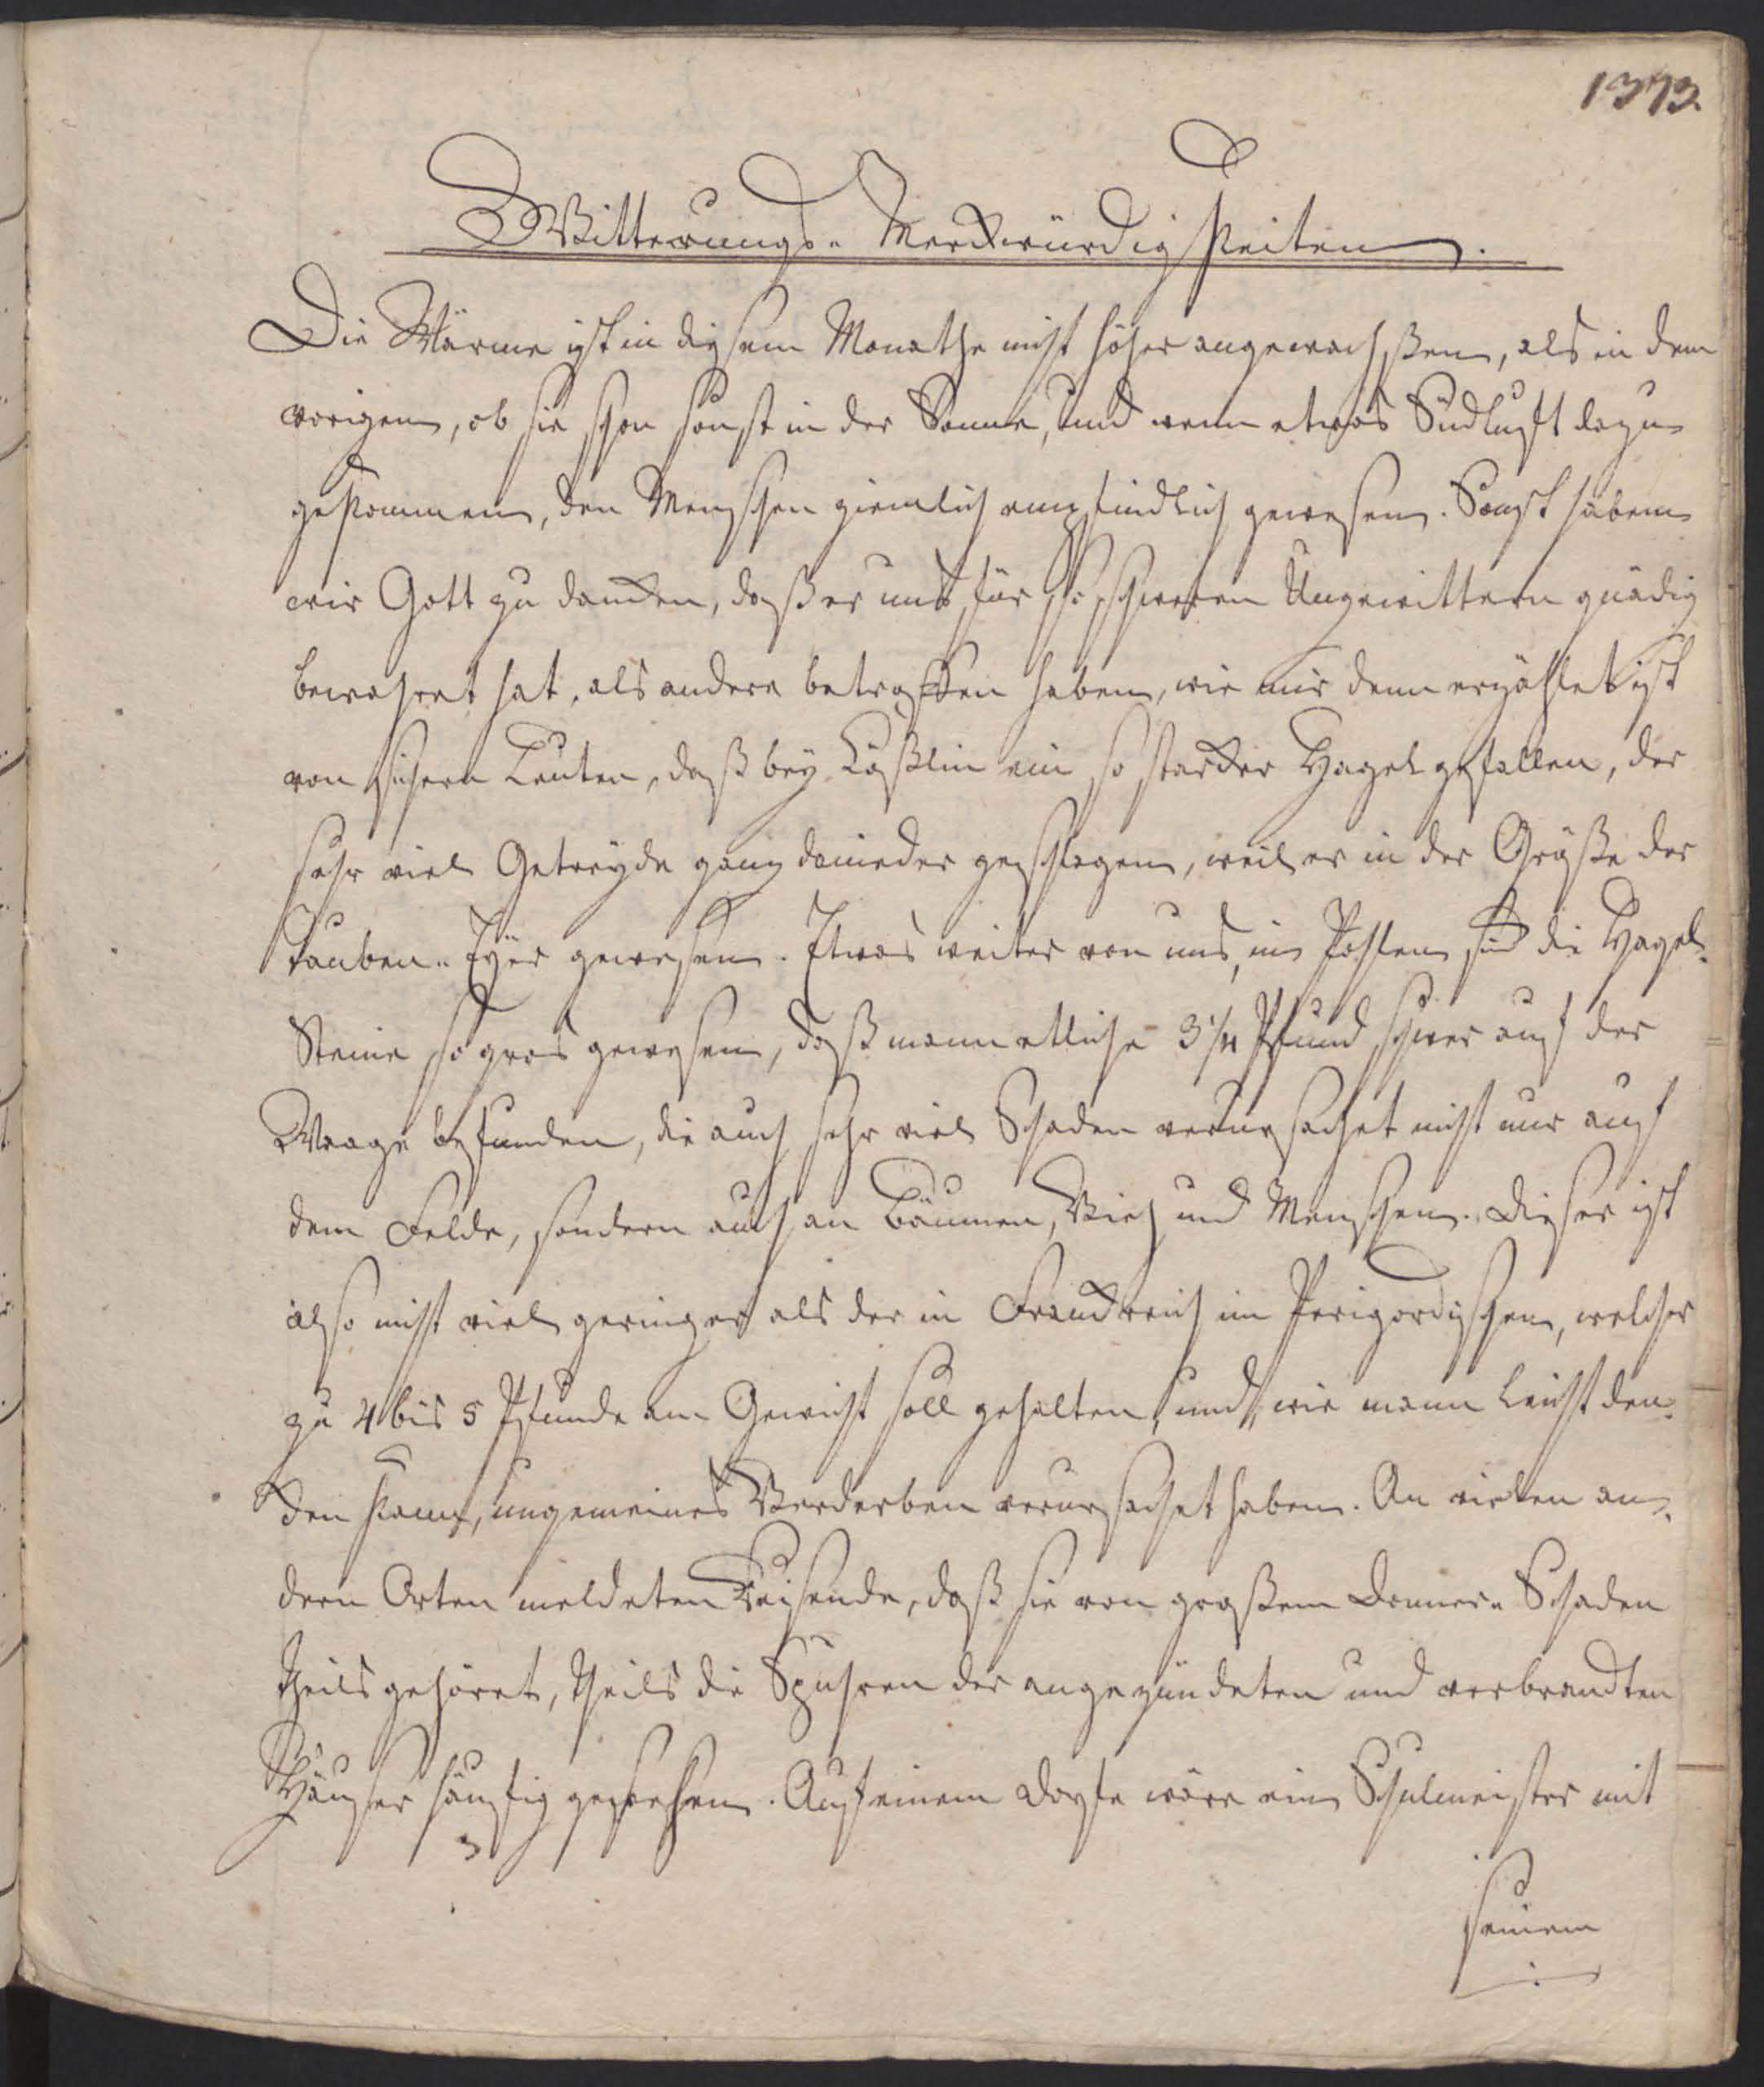 1373
Witterungs-Merckwürdigkeiten.
Die Wärme ist in diesem Monathe nicht höher angewachßen, als in dem
vorigen, ob sie schon sonst in der Sonne, und wenn etwas Südluft dazu
gekommen, den Menschen ziemlich empfindlich gewesen. Sonst haben
wir Gott zu dancken, daß er uns für so schweren Ungewittern gnädig
bewahret hat, als andere betroffen haben, wie mir denn erzählet ist
von sichern Leuten, daß bey Cößlin ein so starcker Hagel gefallen, der
sehr viel Getreyde ganz danieder geschlagen, weil er in der Größe der
Tauben-Eyer gewesen. Etwas weiter von uns, in Pohlen sind die Hagel-
Steine so gros gewesen, daß mann etliche 3 1/4 Pfund schwer auf der
Waage befunden, die auch sehr viel Schaden verursachet nicht nur auf
dem Felde, sondern auch an Bäumen, Vieh und Menschen. Dieser ist
also nicht viel geringer als der in Franckreich im Perigordischen, welcher
zu 4 bis 5 Pfunde am Gewicht soll gehalten, und, wie mann leicht den-
cken kann, ungemeines Verderben verursachet haben. An vielen an-
dern Orten meldeten Reisende, daß sie von großem Donner-Schaden
theils gehöret, theils die Spuhren der angezündeten und verbrandten
Häuser häufig gesehen. Auf einem Dorfe wäre ein Schulmeister mit
seinem